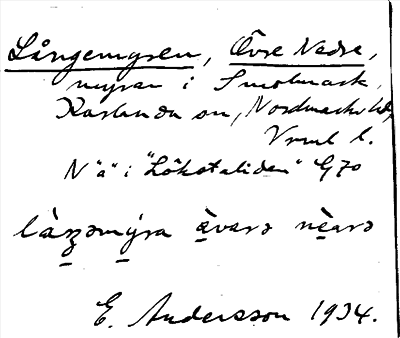 Långemyren, Övre Nedre,
myrar i Smolmark,
Karlanda sn, Nordmarks hd,
Vrml l.
N "a" i "Lökstaliden" G70
làŋəmýra ǜvarə nèarə
E. Andersson 1934.